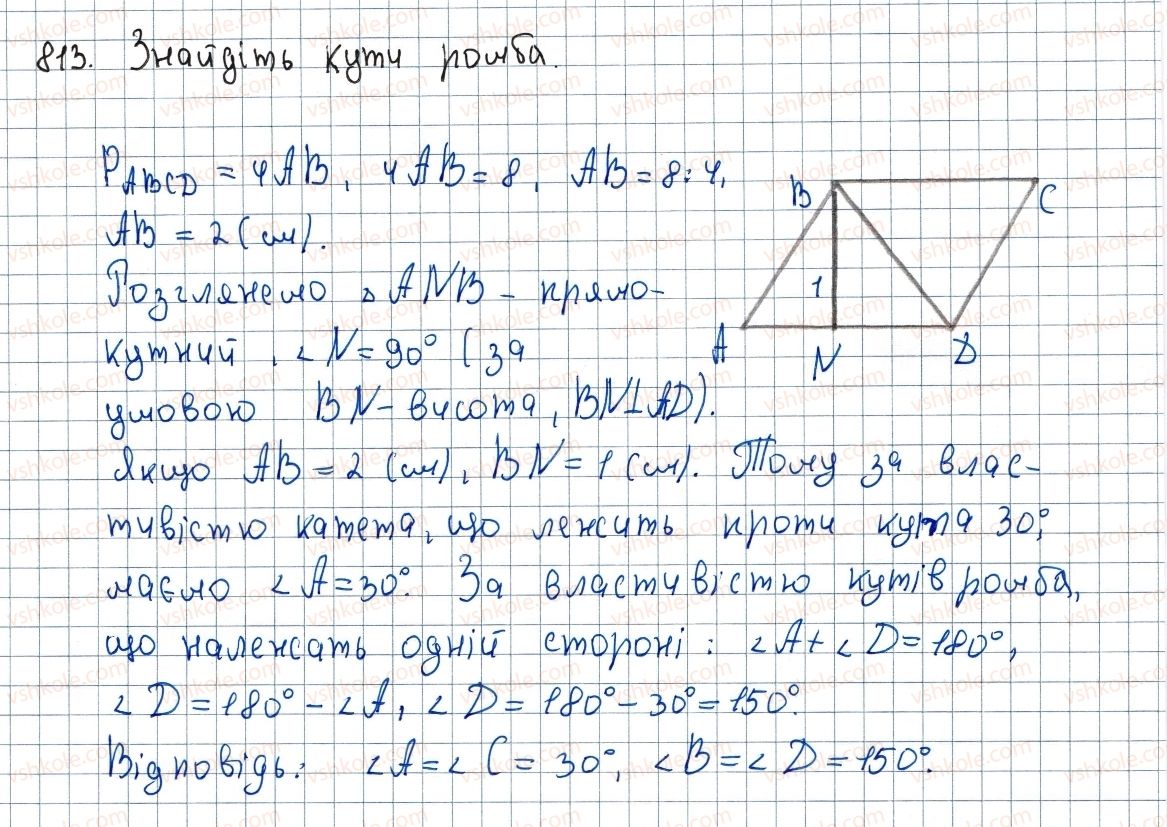 813. Знайдіть кути ромба.
P ABCD = 4AB, 4AB = 8, AB = 8:4,
AB = 2 (см).
Розглянемо △ ANB - прямо-
кутний, ∠N = 90° (за
умовою BN - висота, BN⊥AD).
Якщо AB = 2 (см), BN = 1 (см). Тому за влас-
тивістю катета, що лежить проти кута 30°,
маємо ∠A = 30°. За властивістю кутів ромба,
що належать одній стороні: ∠A + ∠D = 180°,
∠D = 180° - ∠A, ∠D = 180° - 30° = 150°.
Відповідь: ∠A = ∠C = 30°, ∠B = ∠D = 150°.
B
C
1
A
N
D
vshkole.com